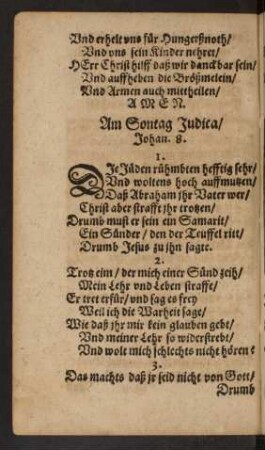 Vnd erhelt vns für Hungerßnoth/
Vnd vns sein Kinder nehret/
HErr Christ hilff daß wir danckbar sein/
Vnd auffheben die Brößmelein/
Vnd Armen auch mittheilen/
A M E N.
Am Sontag Judica/
Johan. 8.
1.
DIe Jüden rühmbten hefftig sehr/
Vnd woltens hoch auffmutzen/
Daß Abraham jhr Vater wer/
Christ aber strafft jhr trotzen/
Drumb must er sein ein Samarit/
Ein Sünder/ den der Teuffel ritt/
Drumb Jesus zu jhn sagte.
2.
Trotz eim/ der mich einer Sünd zeih/
Mein Lehr vnd Leben straffe/
Er tret erfür/ vnd sag es frey
Weil ich die Warheit sage/
Wie daß jhr mir kein glauben gebt/
Vnd meiner Lehr so widerstrebt/
Vnd wolt mich schlechts nicht hören
3.
Das machts daß jr seid nicht von Gott/
Drumb